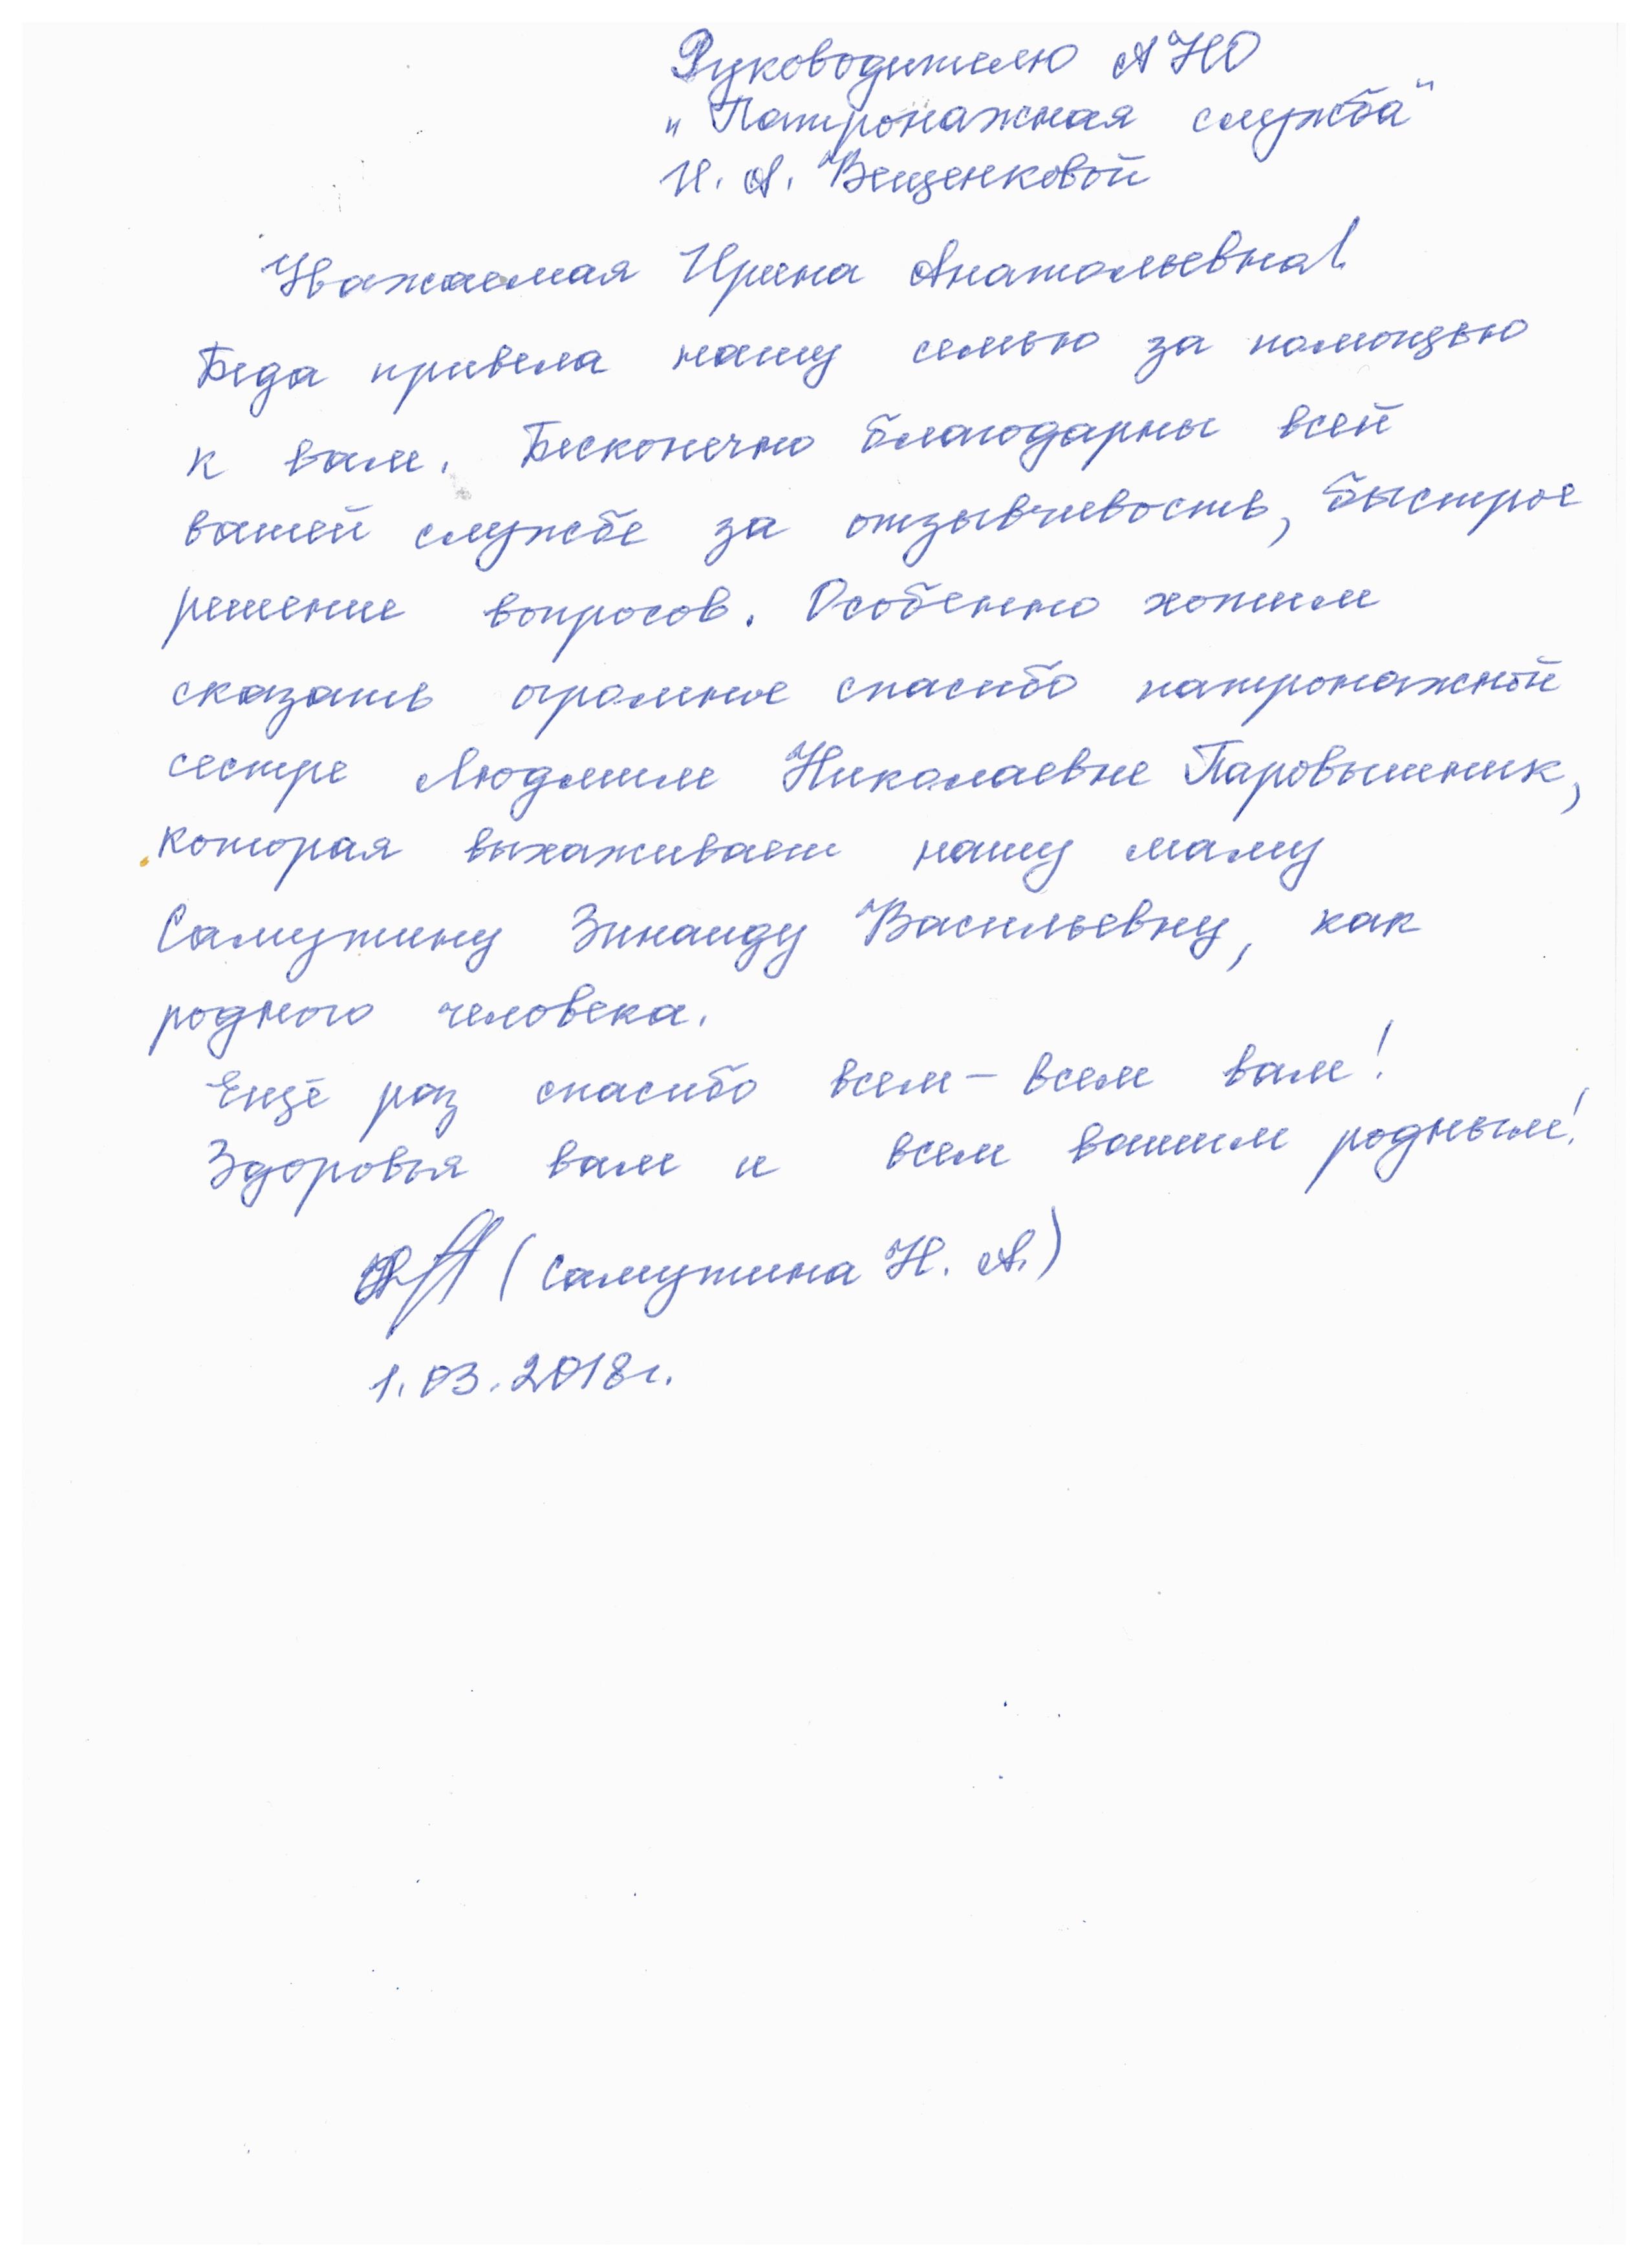 Руководителю АНО
"Патронажная служба"
И. А. Вещенковой
Уважаемая Ирина Анатольевна!
Беда привела нашу семью за помощью
к вам. Бесконечно благодарны всей
вашей службе за отзывчивость, быстрое
решение вопросов. Особенно хотим
сказать огромное спасибо патронажной
сестре Людмиле Николаевне Паровышник,
которая выхаживает нашу маму
Самутину Зинаиду Васильевну, как
родного человека.
Ещё раз спасибо всем-всем вам!
Здоровья вам и всем вашим родным!
(Самутина Н. А.)
1.03.2018г.